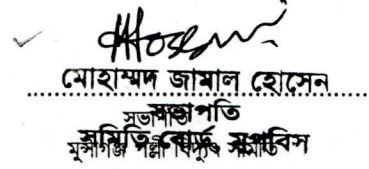 মোহাম্মদ জামাল হোসেন
সভাপতি
সভাপতি
সমিতি বোর্ড, মুপবিস
মুন্সীগঞ্জ পল্লী বিদ্যুৎ সমিতি